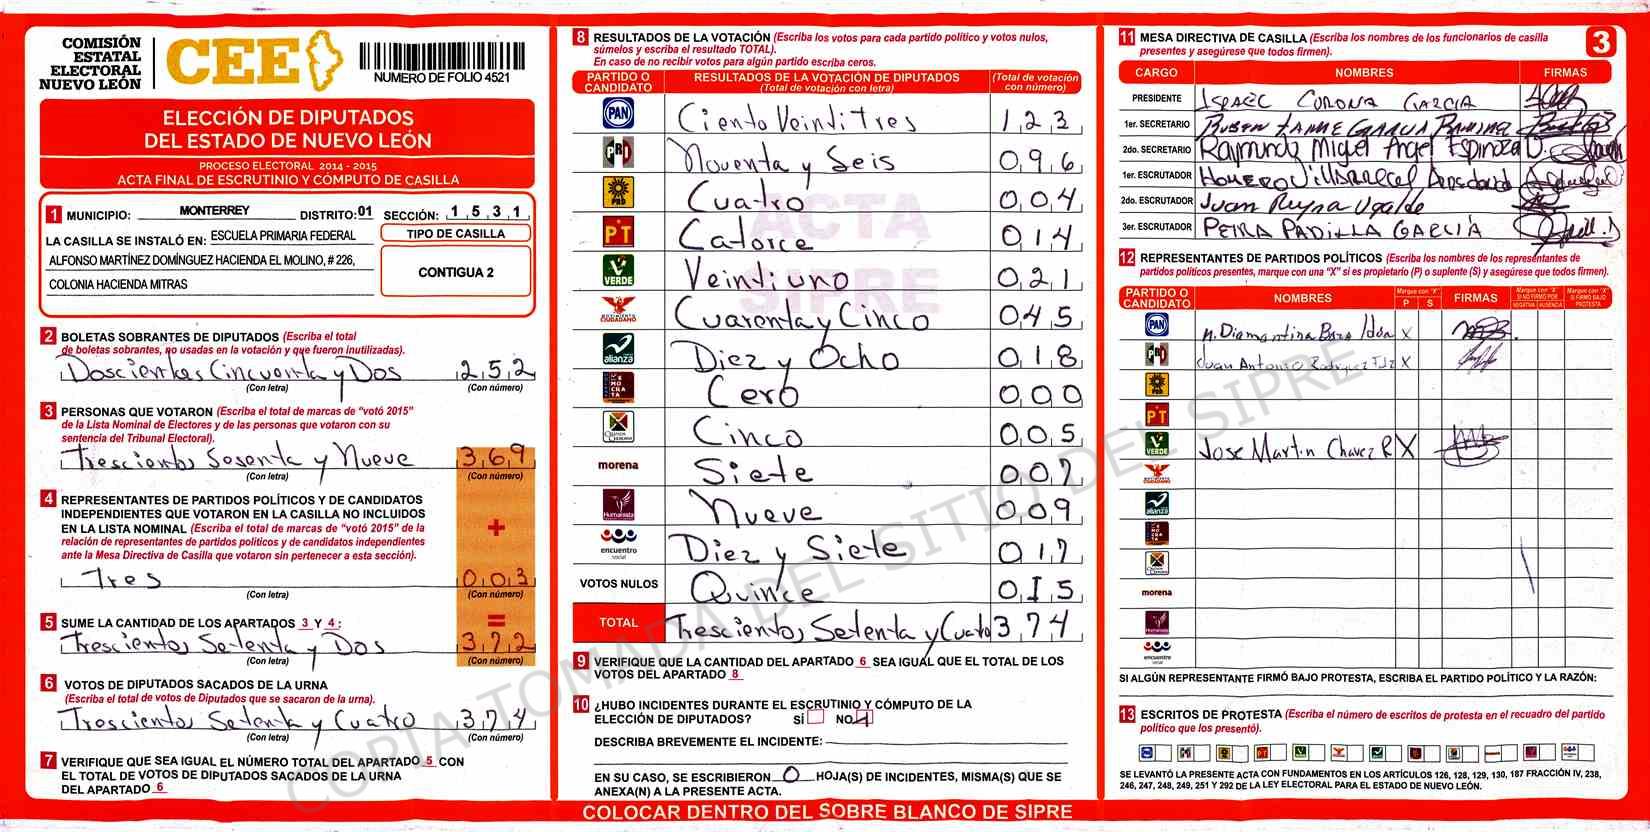 COMISIÓN
ESTATAL
ELECTORAL
NUEVO LEÓN
CEE
NUMERO DE FOLIO 4521
ELECCIÓN DE DIPUTADOS
DEL ESTADO DE NUEVO LEÓN
PROCESO ELECTORAL 2014 - 2015
ACTA FINAL DE ESCRUTINIO Y CÓMPUTO DE CASILLA
1 MUNICIPIO: MONTERREY DISTRITO: 01 SECCIÓN: 1 5 3 1
LA CASILLA SE INSTALÓ EN: ESCUELA PRIMARIA FEDERAL
ALFONSO MARTÍNEZ DOMÍNGUEZ HACIENDA EL MOLINO, # 226,
COLONIA HACIENDA MITRAS
TIPO DE CASILLA
CONTIGUA 2
2 BOLETAS SOBRANTES DE DIPUTADOS (Escriba el total
de boletas sobrantes, no usadas en la votación y que fueron inutilizadas).
Doscientas Cincuenta y Dos 2 5 2
(Con letra) (Con número)
3 PERSONAS QUE VOTARON (Escriba el total de marcas de "votó 2015"
de la Lista Nominal de Electores y de las personas que votaron con su
sentencia del Tribunal Electoral).
Trescientos Sesenta y Nueve 3 6 9
(Con letra) (Con número)
4 REPRESENTANTES DE PARTIDOS POLÍTICOS Y DE CANDIDATOS
INDEPENDIENTES QUE VOTARON EN LA CASILLA NO INCLUIDOS
EN LA LISTA NOMINAL (Escriba el total de marcas de "votó 2015" de la
relación de representantes de partidos políticos y de candidatos independientes
ante la Mesa Directiva de Casilla que votaron sin pertenecer a esta sección).
+
Tres 0 0 3
(Con letra) (Con número)
=
5 SUME LA CANTIDAD DE LOS APARTADOS 3 Y 4:
Trescientos Setenta y Dos 3 7 2
(Con letra) (Con número)
6 VOTOS DE DIPUTADOS SACADOS DE LA URNA
(Escriba el total de votos de Diputados que se sacaron de la urna).
Trescientos Setenta y Cuatro 3 7 4
(Con letra) (Con número)
7 VERIFIQUE QUE SEA IGUAL EL NÚMERO TOTAL DEL APARTADO 5 CON
EL TOTAL DE VOTOS DE DIPUTADOS SACADOS DE LA URNA
DEL APARTADO 6
8 RESULTADOS DE LA VOTACIÓN (Escriba los votos para cada partido político y votos nulos,
súmelos y escriba el resultado TOTAL).
En caso de no recibir votos para algún partido escriba ceros.
PARTIDO O CANDIDATO RESULTADOS DE LA VOTACIÓN DE DIPUTADOS (Total de votación con letra) (Total de votación con número)
PAN Ciento Veinti Tres 1 2 3
PRD Noventa y Seis 0 9 6
PRD Cuatro 0 0 4
PT Catorce 0 1 4
VERDE Veintiuno 0 2 1
MOVIMIENTO CIUDADANO Cuarenta y Cinco 0 4 5
alianza Diez y Ocho 0 1 8
DEMOCRATA Cero 0 0 0
Cinco 0 0 5
morena Siete 0 0 7
Humanista Nueve 0 0 9
encuentro social Diez y Siete 0 1 7
VOTOS NULOS Quince 0 1 5
TOTAL Trescientos Setenta y Cuatro 3 7 4
ACTA
SIPRE
9 VERIFIQUE QUE LA CANTIDAD DEL APARTADO 6 SEA IGUAL QUE EL TOTAL DE LOS
VOTOS DEL APARTADO 8
10 ¿HUBO INCIDENTES DURANTE EL ESCRUTINIO Y CÓMPUTO DE LA
ELECCIÓN DE DIPUTADOS? SÍ NO
DESCRIBA BREVEMENTE EL INCIDENTE:
EN SU CASO, SE ESCRIBIERON 0 HOJA(S) DE INCIDENTES, MISMA(S) QUE SE
ANEXA(N) A LA PRESENTE ACTA.
COLOCAR DENTRO DEL SOBRE BLANCO DE SIPRE
11 MESA DIRECTIVA DE CASILLA (Escriba los nombres de los funcionarios de casilla
presentes y asegúrese que todos firmen).
3
CARGO NOMBRES FIRMAS
PRESIDENTE Corona Garcia
1er. SECRETARIO Ruben Jaime Garcia
2do. SECRETARIO Raimundo Miguel Angel Espinoza
1er. ESCRUTADOR Homero Villarreal
2do. ESCRUTADOR Juan Reyna Ugalde
3er. ESCRUTADOR PETRA PADILLA GARCÍA
12 REPRESENTANTES DE PARTIDOS POLÍTICOS (Escriba los nombres de los representantes de
partidos políticos presentes, marque con una "X" si es propietario (P) o suplente (S) y asegúrese que todos firmen).
PARTIDO O CANDIDATO NOMBRES Marque con "X" P S FIRMAS Marque con "X" SI NO FIRMÓ POR NEGATIVA AUSENCIA Marque con "X" SI FIRMÓ BAJO PROTESTA
PAN Diamantina X
Juan Antonio Rodriguez X
PRD
PT
VERDE Jose Martin Chavez R X
alianza
morena
Humanista
encuentro social
SI ALGÚN REPRESENTANTE FIRMÓ BAJO PROTESTA, ESCRIBA EL PARTIDO POLÍTICO Y LA RAZÓN:
13 ESCRITOS DE PROTESTA (Escriba el número de escritos de protesta en el recuadro del partido
político que los presentó).
SE LEVANTÓ LA PRESENTE ACTA CON FUNDAMENTOS EN LOS ARTÍCULOS 126, 128, 129, 130, 187 FRACCIÓN IV, 238,
246, 247, 248, 249, 251 Y 292 DE LA LEY ELECTORAL PARA EL ESTADO DE NUEVO LEÓN.
COPIA TOMADA DEL SITIO DEL SIPRE